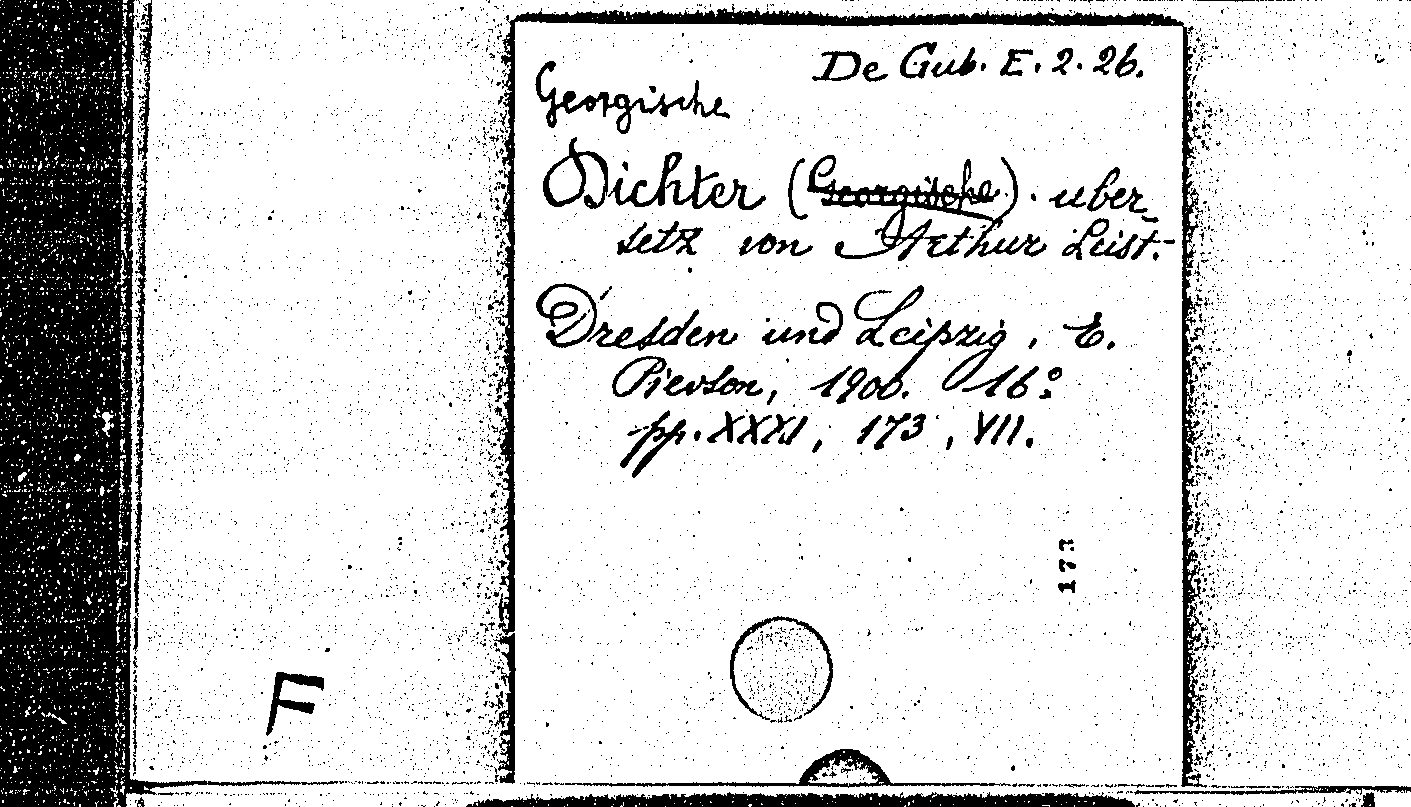 De Gub. E. 2. 26.
Georgische
Dichter (Georgische). uber_
setz von Arthur Leist.-
Dresden und Leipzig, E.
Pierson, 1900. 16º
pp. XXXI, 173, VII.
173
F